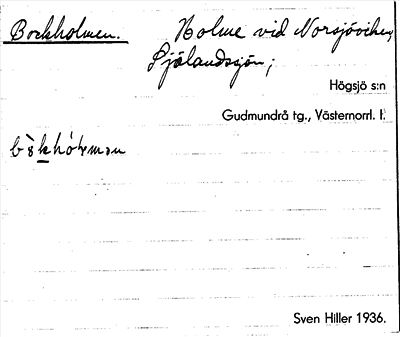 Bockholmen. Holme vid Norsjöviken,
Själandssjön;
Högsjö s:n
Gudmundrå tg., Västernorrl. l.
Sven Hiller 1936.